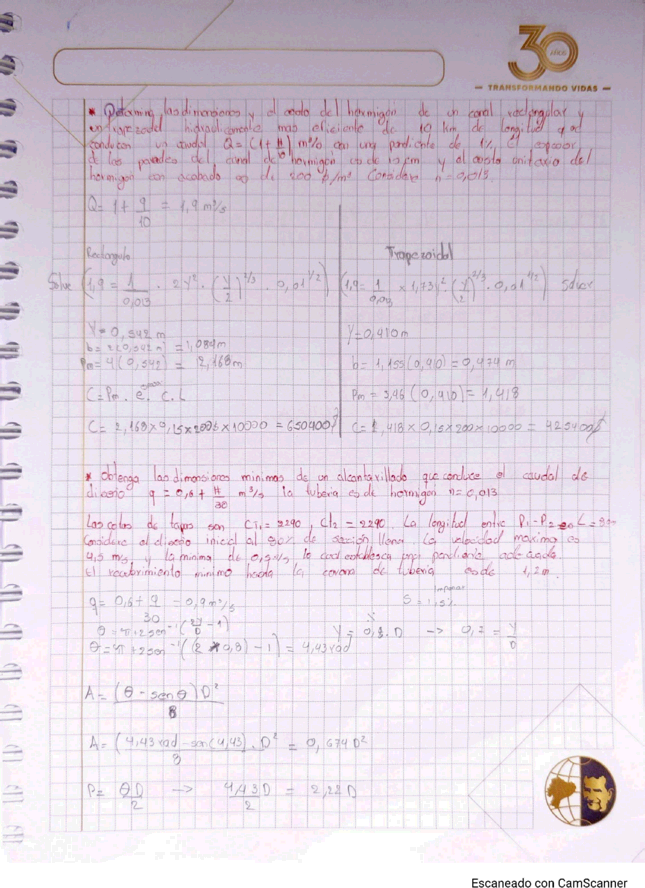 30 AÑOS
TRANSFORMANDO VIDAS
* Determina las dimensiones y el costo del hormigón de un canal rectangular y
un trapezoidal hidraulicamente mas eficiente de 10 km de longitud que
conducen un caudal Q = (1 + #/10) m³/s con una pendiente de 1%, el espesor
de las paredes del canal de hormigon es de 15 cm y el costo unitario del
hormigon con acabado es de 200 $/m³ Considere n = 0,013
Q = 1 + 9/10 = 1,9 m³/s
Rectangulo
Solve (1,9 = 1/0,013 · 2y² · (y/2)^2/3 · 0,01^1/2)
Y = 0,542 m
b = 2(0,542 m) = 1,084 m
Pm = 4(0,542) = 2,168 m
C = Pm . e . c. L
C = 2,168 x 0,15 x 200$ x 10000 = 650400 $
Trapezoidal
(1,9 = 1/0,013 x 1,73y² (y/2)^2/3 · 0,01^1/2) Solve
Y = 0,410 m
b = 1,155 (0,410) = 0,474 m
Pm = 3,46 (0,410) = 1,418
C = 1,418 x 0,15 x 200 x 10000 = 425400 $
* Obtenga las dimensiones minimas de un alcantarillado que conduce el caudal de
diseño q = 0,6 + #/30 m³/s la tuberia es de hormigon n = 0,013
Las cotas de tapas son CT1 = 2290, CT2 = 2290. La longitud entre P1 - P2
Considere el diseño inicial al 80% de sección llena. La velocidad maxima es
4,5 m/s y la minima de
El recubrimiento minimo hasta la corona de tuberia es de 1,2 m.
q = 0,6 + 9/30 = 0,9 m³/s
S = 1,5%
θ = π + 2 sen⁻¹ (2Y/D - 1)
θ = π + 2 sen⁻¹ ((2 * 0,8) - 1) = 4,43 rad
Y = 0,8 . D -> = Y/D
A = (θ - sen θ) D² / 8
A = (4,43 rad - sen(4,43)) . D² / 8 = 0,674 D²
P = θD/2 -> 4,43 D/2 = 2,22 D
Escaneado con CamScanner